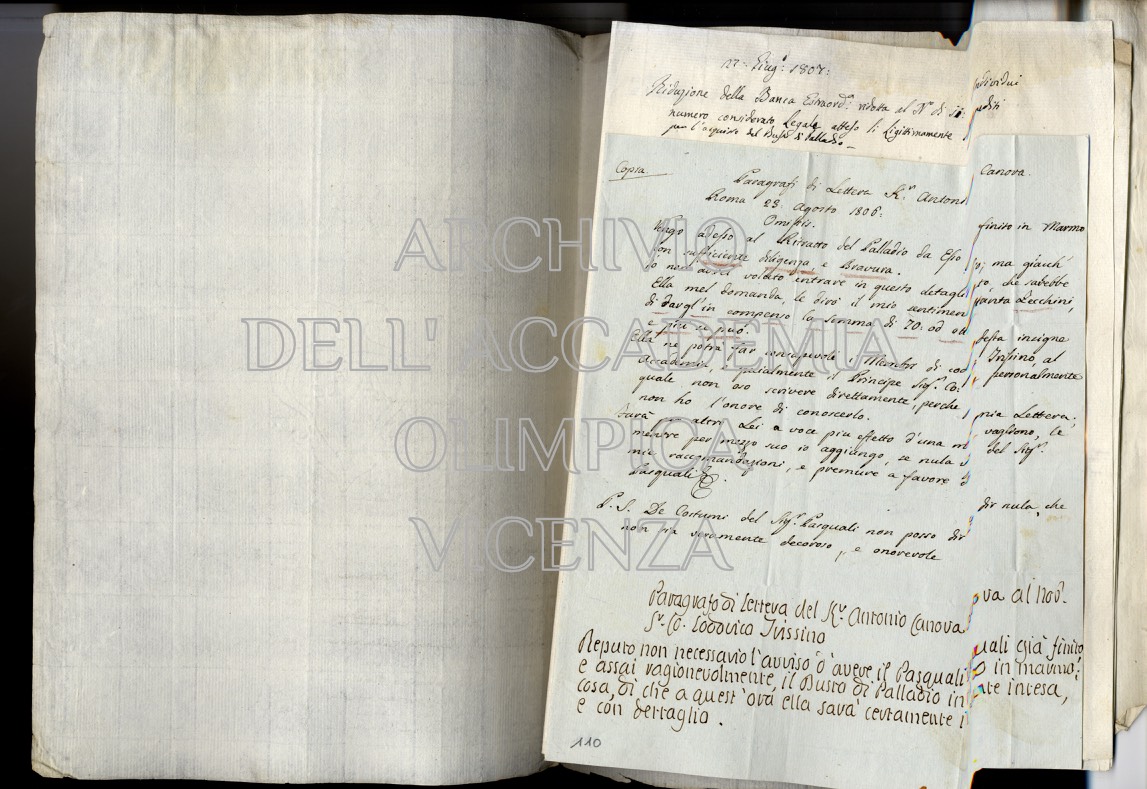 17: Giug.o 1807:
Riduzione della Banca Estraord.a ridotta al N.o di 11: individui
numero considerato Legale atteso li Legitimamente editi
per l'acquisto del Busto di Palladio
Copia.
Paragrafi di Lettera K.r Antoni Canova.
Roma 23: Agosto 1806:
Omissis.
Vengo adesso al Ritratto del Palladio da Esso finito in Marmo
con sufficiente diligenza e Bravura.
Io non avrei voluto entrare in questo detaglio; ma giacch'
Ella mel domanda, le dirò il mio sentimento, che sarebbe
di dargl'in compenso la somma di 70: od ottanta Zecchini,
e più si può.
Ella ne potrà far consapevole i Membri di codesta insigne
Accademia, e spezialmente il Principe Sig.r Co: Trissino, al
quale non oso scrivere direttamente, perchè personalmente
non ho l'onore di conoscerlo.
Farà per altro Lei a voce più effetto d'una mia Lettera;
mentre per mezzo suo io aggiungo, se nula vagliono, le
mie raccomandazioni, e premure a favore del Sig.r
Pasquali &.
P. S. De Costumi del Sig.r Pasquali non posso dir nula, che
non sia veramente decoroso, e onorevole
Paragrafo di Lettera del K.r Antonio Canova al Nob.
S.r Co. Lodovico Trissino
Reputo non necessario l'avviso d'avere il Pasquali già finito
e assai ragionevolmente, il Busto di Palladio in marmo;
cosa, di che a quest'ora ella sarà certamente intesa,
e con dettaglio.
110
ARCHIVIO
DELL'ACCADEMIA
OLIMPICA
VICENZA